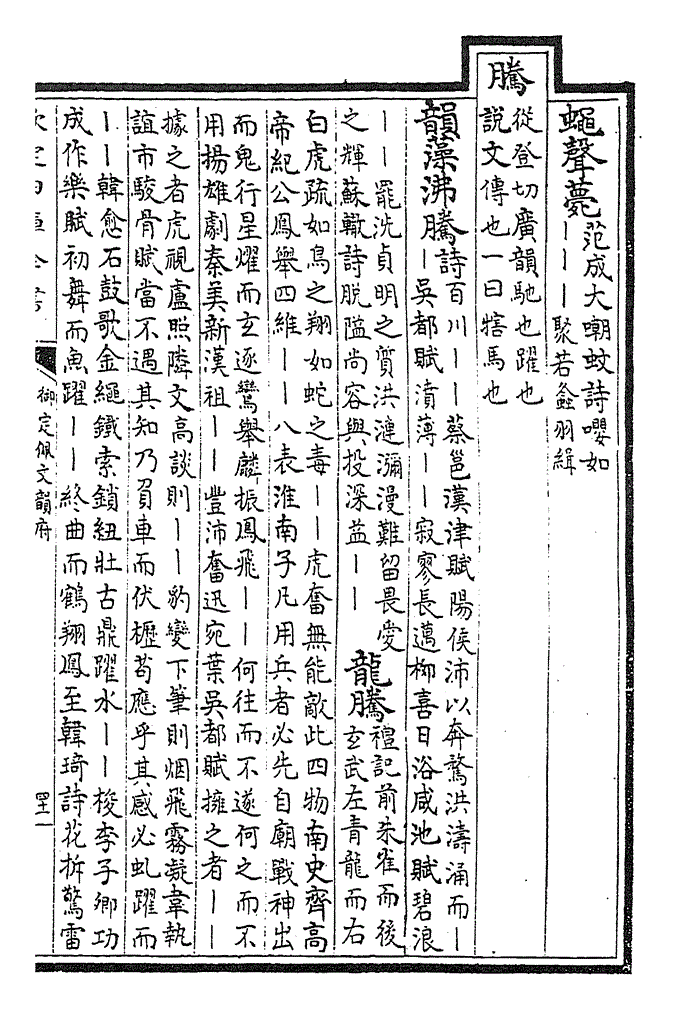 蠅聲薨范成大嘲蚊詩嚶如
｜｜｜聚若螽羽緝
騰
從登切廣韻馳也躍也
說文傳也一曰犗馬也
韻藻沸騰詩百川｜｜蔡邕漢津賦陽侯沛以奔騖洪濤涌而｜
｜吳都賦濆薄｜｜寂寥長邁栁喜日浴咸池賦碧浪
｜｜罷洗貞明之質洪漣瀰漫難留畏愛
之輝蘇轍詩脫隘尚容與投深益｜｜
龍騰禮記前朱雀而後
玄武左青龍而右
白虎疏如鳥之翔如蛇之毒｜｜虎奮無能敵此四物南史齊高
帝紀公鳳舉四維｜｜八表淮南子凡用兵者必先自廟戰神出
而鬼行星燿而玄逐鸞舉麟振鳳飛｜｜何往而不遂何之而不
用揚雄劇秦美新漢祖｜｜豐沛奮迅宛葉吳都賦擁之者｜｜
據之者虎視盧照隣文高談則｜｜豹變下筆則烟飛霧凝韋執
誼市駿骨賦當不遇其知乃負車而伏櫪苟應乎其感必虬躍而
｜｜韓愈石鼓歌金繩鐵索鎖紐壯古鼎躍水｜｜梭李子卿功
成作樂賦初舞而魚躍｜｜終曲而鶴翔鳳至韓琦詩花拆驚雷
欽定四庫全書
御定佩文韻府